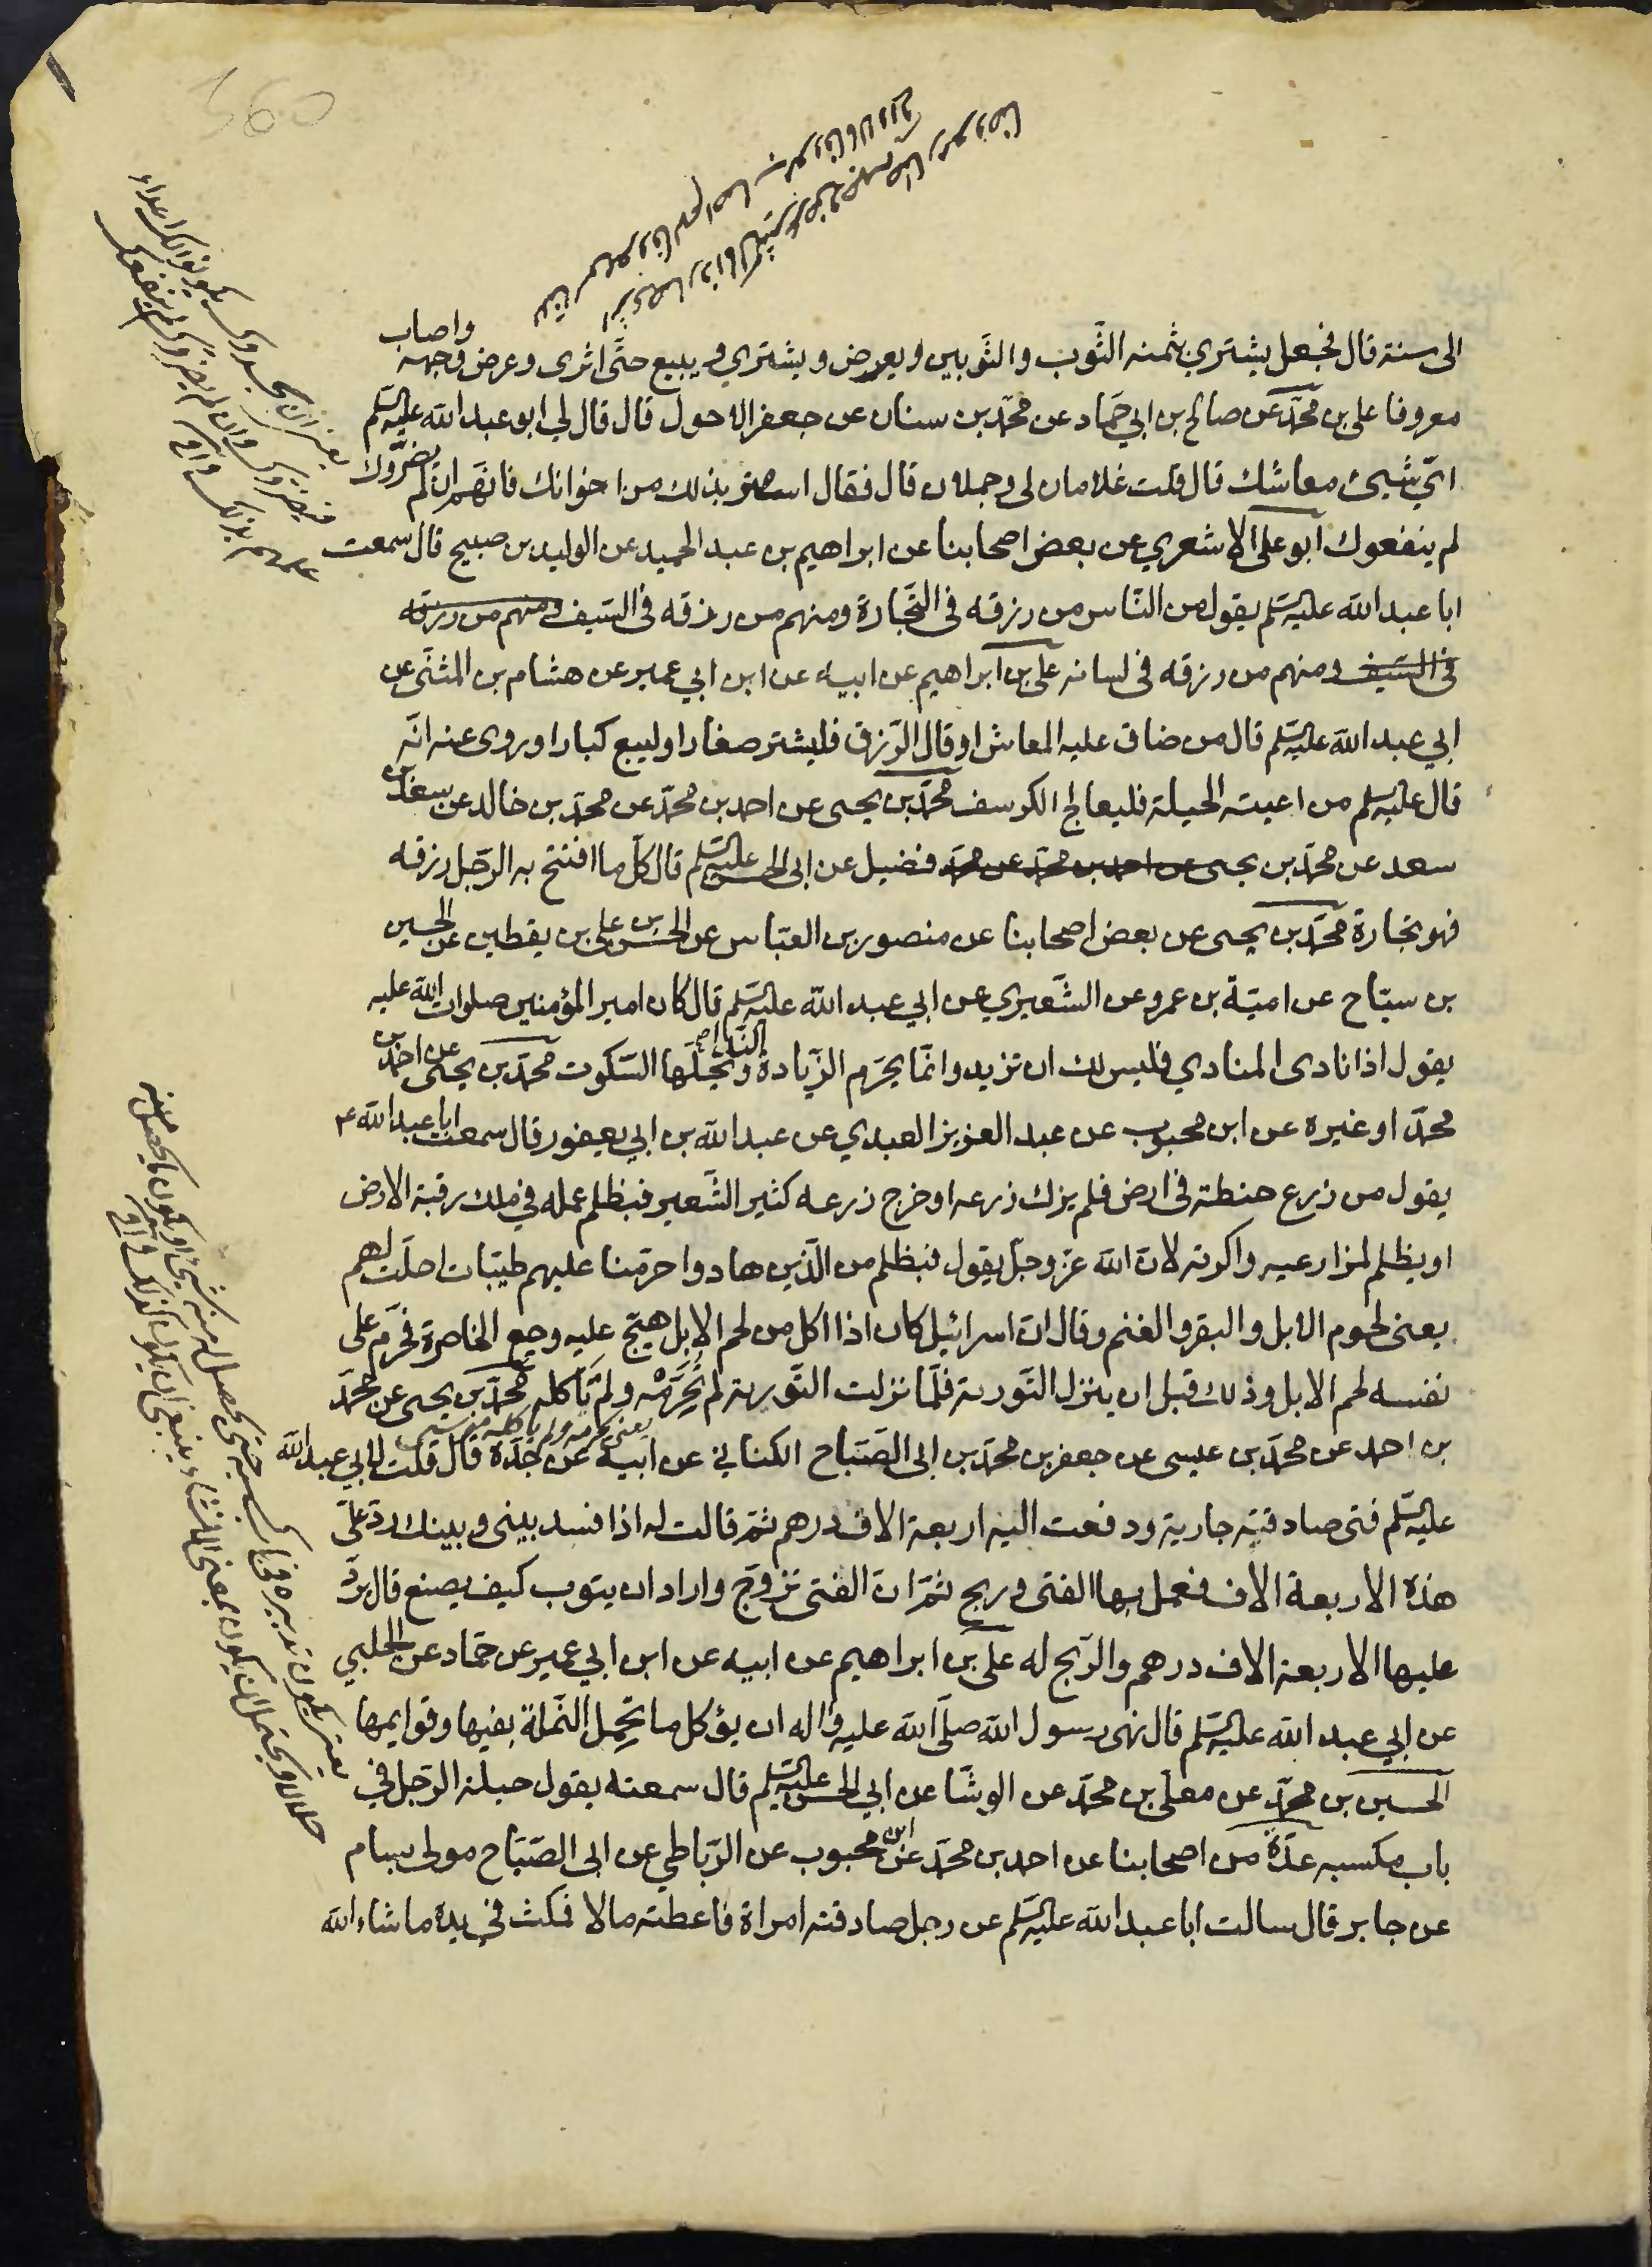 الى سنة قال فجعل يشتري بثمنه الثّوب والثّوبين ويعرض ويشتري ويبيع حتّى اثرى وعرض وجهه واصاب
معروفا علي بن محمّد عن صالح بن ابي حمّاد عن محمّد بن سنان عن جعفر الاحول قال قال لي ابو عبد الله عليه السّلم
ايّ شيئ معاشك قال قلت غلامان لي وجملان قال فقال استتر بذلك من اخوانك فانّهم ان لم يضرّوك
لم ينفعوك ابو علي الاشعري عن بعض اصحابنا عن ابراهيم بن عبد الحميد عن الوليد بن صبيح قال سمعت
ابا عبد الله عليه السّلم يقول من النّاس من رزقه في التّجارة ومنهم من رزقه في السّيف ومنهم من رزقه
في السّيف ومنهم من رزقه في لسانه علي بن ابراهيم عن ابيه عن ابن ابي عمير عن هشام بن المثنّى عن
ابي عبد الله عليه السّلم قال من ضاق عليه المعاش او قال الرّزق فليشتر صغارا وليبع كبارا وروى عنه انّه
قال عليه السلم من اعيته الحيلة فليعالج الكرسف محمّد بن يحيى عن احمد بن محمّد عن محمّد بن خالد عن سعد بن
سعد عن محمّد بن يحيى عن احمد بن محمّد عن محمّد فضيل عن ابي الحسن عليه السّلم قال كلّ ما افتتح به الرّجل رزقه
فهو تجارة محمّد بن يحيى عن بعض اصحابنا عن منصور بن العبّاس عن الحسن بن علي بن يقطين عن الحسين
بن سيّاح عن اميّة بن عمرو عن الشّعيري عن ابي عبد الله عليه السّلم قال كان امير المؤمنين صلوات الله عليه
يقول اذا نادى المنادي فليس لك ان تزيد وانّما يحرّم الزّيادة النّداء ويحلّها السّكوت محمّد بن يحيى عن احمد بن
محمّد او غيره عن ابن محبوب عن عبد العزيز العبدي عن عبد الله بن ابي يعفور قال سمعت ابا عبد الله ع
يقول من زرع حنطة في ارض فلم يزك زرعه او خرج زرعه كثير الشّعير فبظلم عمله في ملك رقبة الارض
او بظلم لمزارعيه واكرته لانّ الله عزّ وجلّ يقول فبظلم من الّذين هادوا حرّمنا عليهم طيّبات احلّت لهم
يعني لحوم الابل والبقر والغنم وقال انّ اسرائيل كان اذا اكل من لحم الابل هيّج عليه وجع الخاصرة فحرّم على
نفسه لحم الابل وذلك قبل ان ينزل التّورية فلمّا نزلت التّورية لم يُحَرِّمْه ولم يَأكله محمّد بن يحيى عن محمّد
بن احمد عن محمّد بن عيسى عن جعفر بن محمّد بن ابي الصّبّاح الكناني عن ابيه عن جدّه قال قلت لابي عبد الله
عليه السّلم فتى صادقته جارية ودفعت اليه اربعة الاف درهم ثمّ قالت له اذا فسد بيني وبينك ردّ علَيّ
هذه الاربعة الاف فعمل بها الفتى وربح ثمّ انّ الفتى تزوّج واراد ان يتوب كيف يصنع قال يردّ
عليها الاربعة الاف درهم والرّبح له علي بن ابراهيم عن ابيه عن ابن ابي عمير عن حمّاد عن الحلبي
عن ابي عبد الله عليه السّلم قال نهى رسول الله صلّى الله عليه واله ان يؤكل ما تحمل النّملة بفيها وقوايمها
الحسين بن محمّد عن معلّى بن محمّد عن الوشّا عن ابي الحسن عليه السّلم قال سمعته يقول حيلة الرّجل في
باب مكسبه عدّة من اصحابنا عن احمد بن محمّد عن ابن محبوب عن الرّباطي عن ابي الصّبّاح مولى بسام
عن جابر قال سالت ابا عبد الله عليه السّلم عن رجل صادقته امراة فاعطته مالا فمكث في يده ما شاء الله